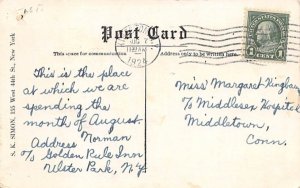 Post Card
This space for correspondence
Address only to be written here.
1924
1 CENT 1
S. K. SIMON, 155 West 44th St. New York
This is the place
at which we are
spending the
month of August.
Norman
Address
c/o Golden Rule Inn
Ulster Park, N.Y.
Miss Margaret Kingbury
c/o Middlesex Hospital
Middletown,
Conn.